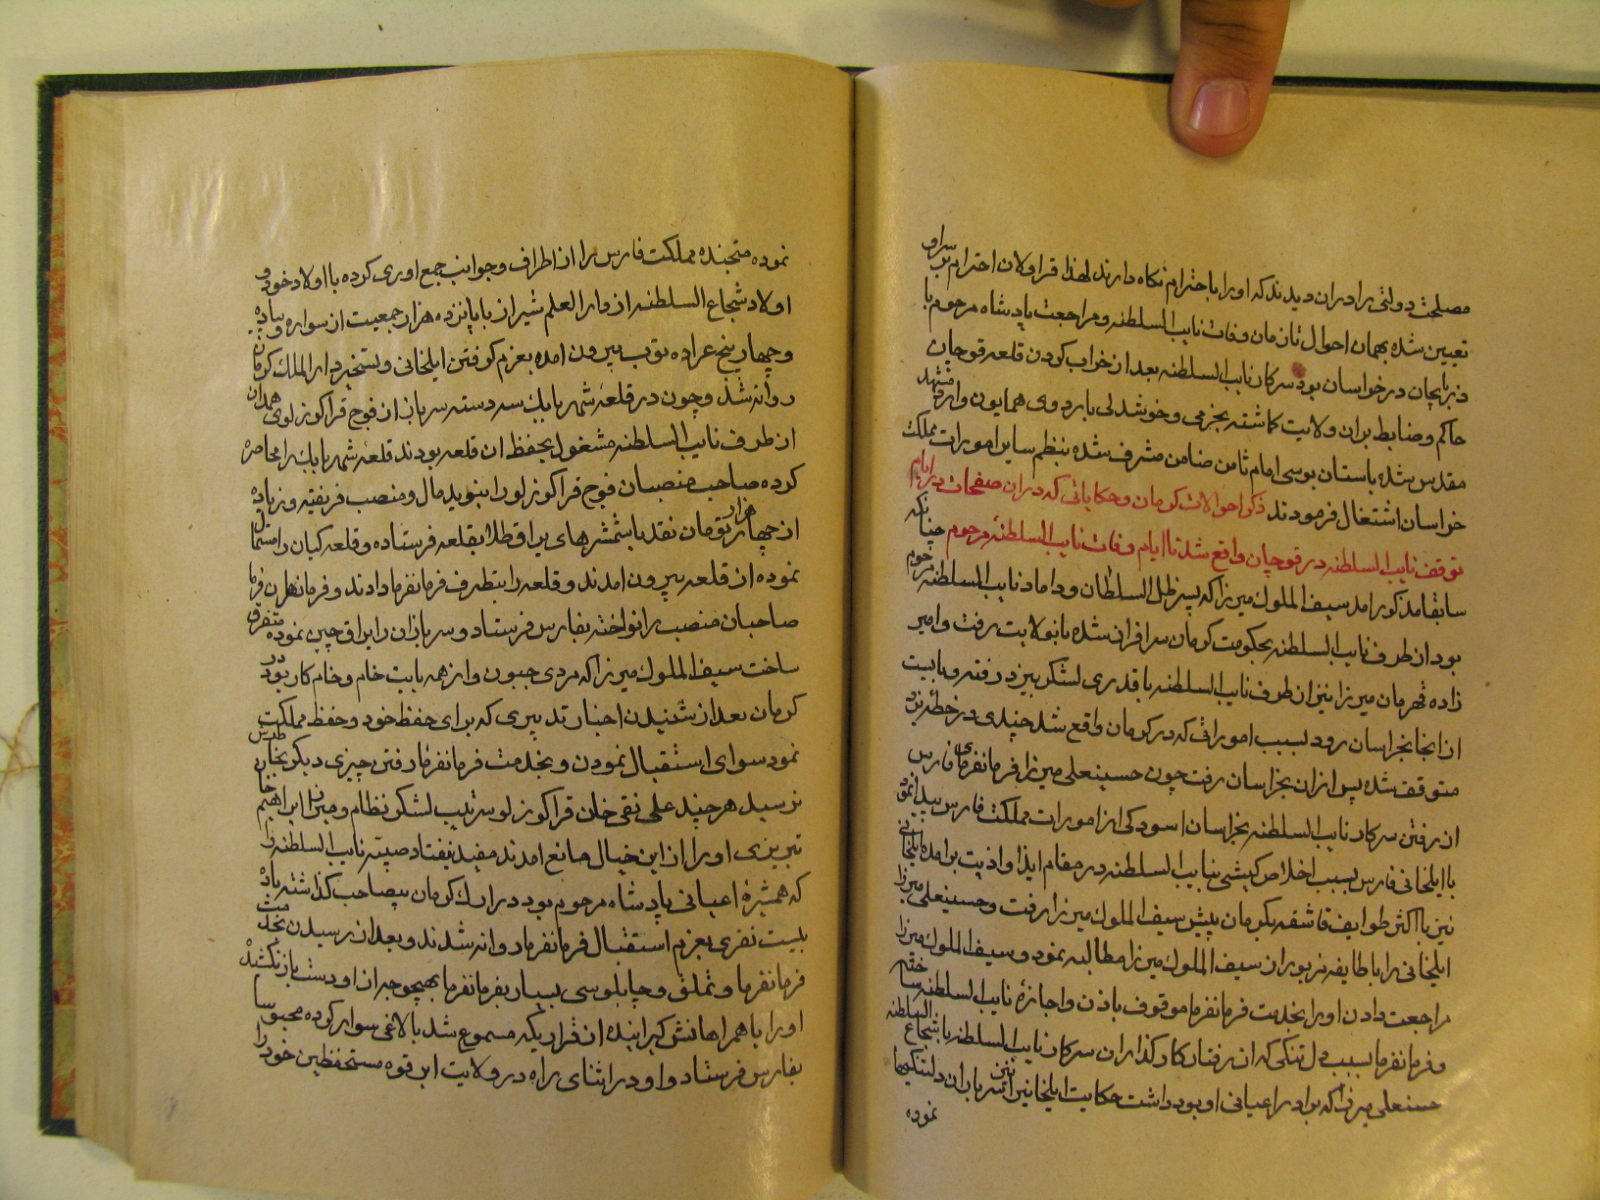 مصلحت دولتی را در ان دیدند که او را با احترام نکاه دارند لهذا قراولان احترام بر او
تعیین شده بهمان احوال تا زمان وفات نایب السلطنه و مراجعت پادشاه مرحوم با
در خراسان بود سرکار نایب السلطنه بعد از خراب کردن قلعه قوچان
حاکم و ضابط بران ولایت کماشته بخرمی و خوشدلی با اردوی همایون وارد مشهد
مقدس شده باستان بوسی امام ثامن ضامن مشرف شده بنظم سایر امورات مملکت
خراسان اشتغال فرمودند ذکر احوالات کرمان و حکایاتی که در ان صفحات در ایام
توقف نایب السلطنه در قوچان واقع شد تا ایام وفات نایب السلطنه مرحوم چنانکه
سابقا مذکور امد سیف الملوک میرزا که پسر ظل السلطان و داماد نایب السلطنه مرحوم
بود از طرف نایب السلطنه بحکومت کرمان سرافراز شده بانولایت رفت و امیر
زاده قهرمان میرزا نیز از طرف نایب السلطنه با قدری لشکر بیزد رفته و بایست
از انجا بخراسان رود بسبب اموراتی که در کرمان واقع شد چندی در خطه یزد
متوقف شده پس از ان بخراسان رفت چون حسینعلی میرزا فرمانفرمای فارس
از رفتن سرکار نایب السلطنه بخراسان اسودکی از امورات مملکت فارس پیدا نمود
با ایلخانی فارس بسبب اخلاص کیشی بنایب السلطنه در مقام ایذا و اذیت برامده ایلخانی
نیز با اکثر طوایف قاشقه بکرمان پیش سیف الملوک میرزا رفت و حسینعلی میرزا
ایلخانی را با طایفه مزبور از سیف الملوک میرزا مطالبه نمود و سیف الملوک میرزا
مراجعت دادن او را بخدمت فرمانفرما موقوف باذن و اجازهٔ نایب السلطنه ساخته
و فرمانفرما بسبب دلتنکی که از رفتار کارکذاران سرکار نایب السلطنه با شجاع السلطنه
حسینعلی میرزا که برادر اعیانی او بود داشت حکایت ایلخانی نیز سربار ان دلتنکیها
نموده
نموده متجنده مملکت فارس را از اطراف و جوانب جمع اوری کرده با اولاد خود و
اولاد شجاع السلطنه از دار العلم شیراز با پانزده هزار جمعیت از سواره و پیاده
و چهار پنج عراده توپ بیرون امده بعزم کرفتن ایلخانی و تسخیر دار الملک کرمان
روانه شد و چون در قلعهٔ شهر بابک سه دسته سرباز از فوج قراکوزلوی همدان
از طرف نایب السلطنه مشغول بحفظ ان قلعه بودند قلعهٔ شهر بابک را محاصره
کرده صاحب منصبان فوج قراکوزلو را بنوید مال و منصب فریفته و زیاده
از چهار هزار تومان نقد با شمشرهای یراق طلا بقلعه فرستاده و قلعه کیان را مستمال
نموده از قلعه بیرون امدند و قلعه را بتطرف فرمانفرما دادند و فرمانفرما
صاحبان منصب را نواخته بفارس فرستاد و سربازان را یراق چین نموده متفرق
ساخت سیف الملوک میرزا که مردی جبون و از همه بابت خام و خام کار بود در
کرمان بعد از شنیدن اخبار تدبیری که برای حفظ خود و حفظ مملکت
نمود سوای استقبال نمودن و بخدمت فرمانفرما رفتن چیزی دیکر بخاطرش
نرسید هر چند علی نقی خان قراکوزلو سرتیپ لشکر نظام و میرزا ابراهیم خان
تبریزی او را از این خیال مانع امدند مفید نیفتاد صبیّه نایب السلطنه را
که همشیرهٔ اعیانی پادشاه مرحوم بود در ارک کرمان بیصاحب کذاشته با ده
بیست نفری بعزم استقبال فرمانفرما روانه شدند و بعد از رسیدن بخدمت
فرمانفرما و تملق و چاپلوسی بسیار بفرمانفرما بهیچوجه از او دست باز نکشیده
او را با همراهانش کیرانیده از قراریکه مسموع شد بالاغی سوار کرده محبوسا
بفارس فرستاد و او در اثنای راه در ولایت ابرقوه مستحفظین خود را